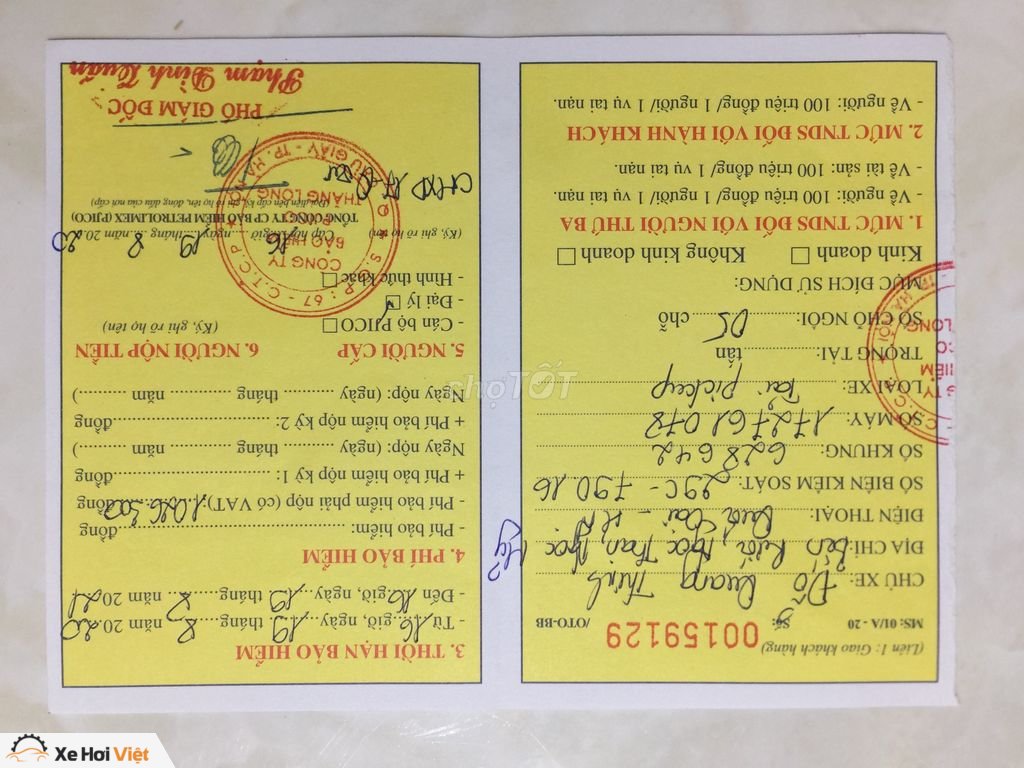 (Liên 1: Giao khách hàng)
MS: 01/A - 20 Số: 00159129 /OTO-BB
CHỦ XE: Đỗ Quang Thịnh
ĐỊA CHỈ: Bến Ngọc Trân, Ngọc Mỹ
ĐIỆN THOẠI: Quốc Oai - HN
SỐ BIỂN KIỂM SOÁT: 29C - 790.16
SỐ KHUNG: 628642
SỐ MÁY: 172761078
LOẠI XE: Tải pickup
TRỌNG TẢI: tấn
SỐ CHỖ NGỒI: 05 chỗ
MỤC ĐÍCH SỬ DỤNG:
Kinh doanh Không kinh doanh
1. MỨC TNDS ĐỐI VỚI NGƯỜI THỨ BA
- Về người: 100 triệu đồng/ 1 người/ 1 vụ tai nạn.
- Về tài sản: 100 triệu đồng/ 1 vụ tai nạn.
2. MỨC TNDS ĐỐI VỚI HÀNH KHÁCH
- Về người: 100 triệu đồng/ 1 người/ 1 vụ tai nạn.
3. THỜI HẠN BẢO HIỂM
- Từ 16 giờ, ngày 19 tháng 8 năm 20.20
- Đến 16 giờ, ngày 19 tháng 8 năm 20.21
4. PHÍ BẢO HIỂM
- Phí bảo hiểm: đồng
- Phí bảo hiểm phải nộp (có VAT): 1.026.300 đồng
+ Phí bảo hiểm nộp kỳ 1: đồng
Ngày nộp: (ngày tháng năm )
+ Phí bảo hiểm nộp kỳ 2: đồng
Ngày nộp: (ngày tháng năm )
5. NGƯỜI CẤP 6. NGƯỜI NỘP TIỀN
- Cán bộ PJICO (Ký, ghi rõ họ tên)
- Đại lý
- Hình thức khác
(Ký, ghi rõ họ tên) Cấp hồi 16 giờ, ngày 19 tháng 8 năm 20.20
TỔNG CÔNG TY CP BẢO HIỂM PETROLIMEX (PJICO)
CÔNG TY
BẢO HIỂM
THĂNG LONG
PHÓ GIÁM ĐỐC
Phạm Đình Xuân
chợTỐT
Xe Hơi Việt